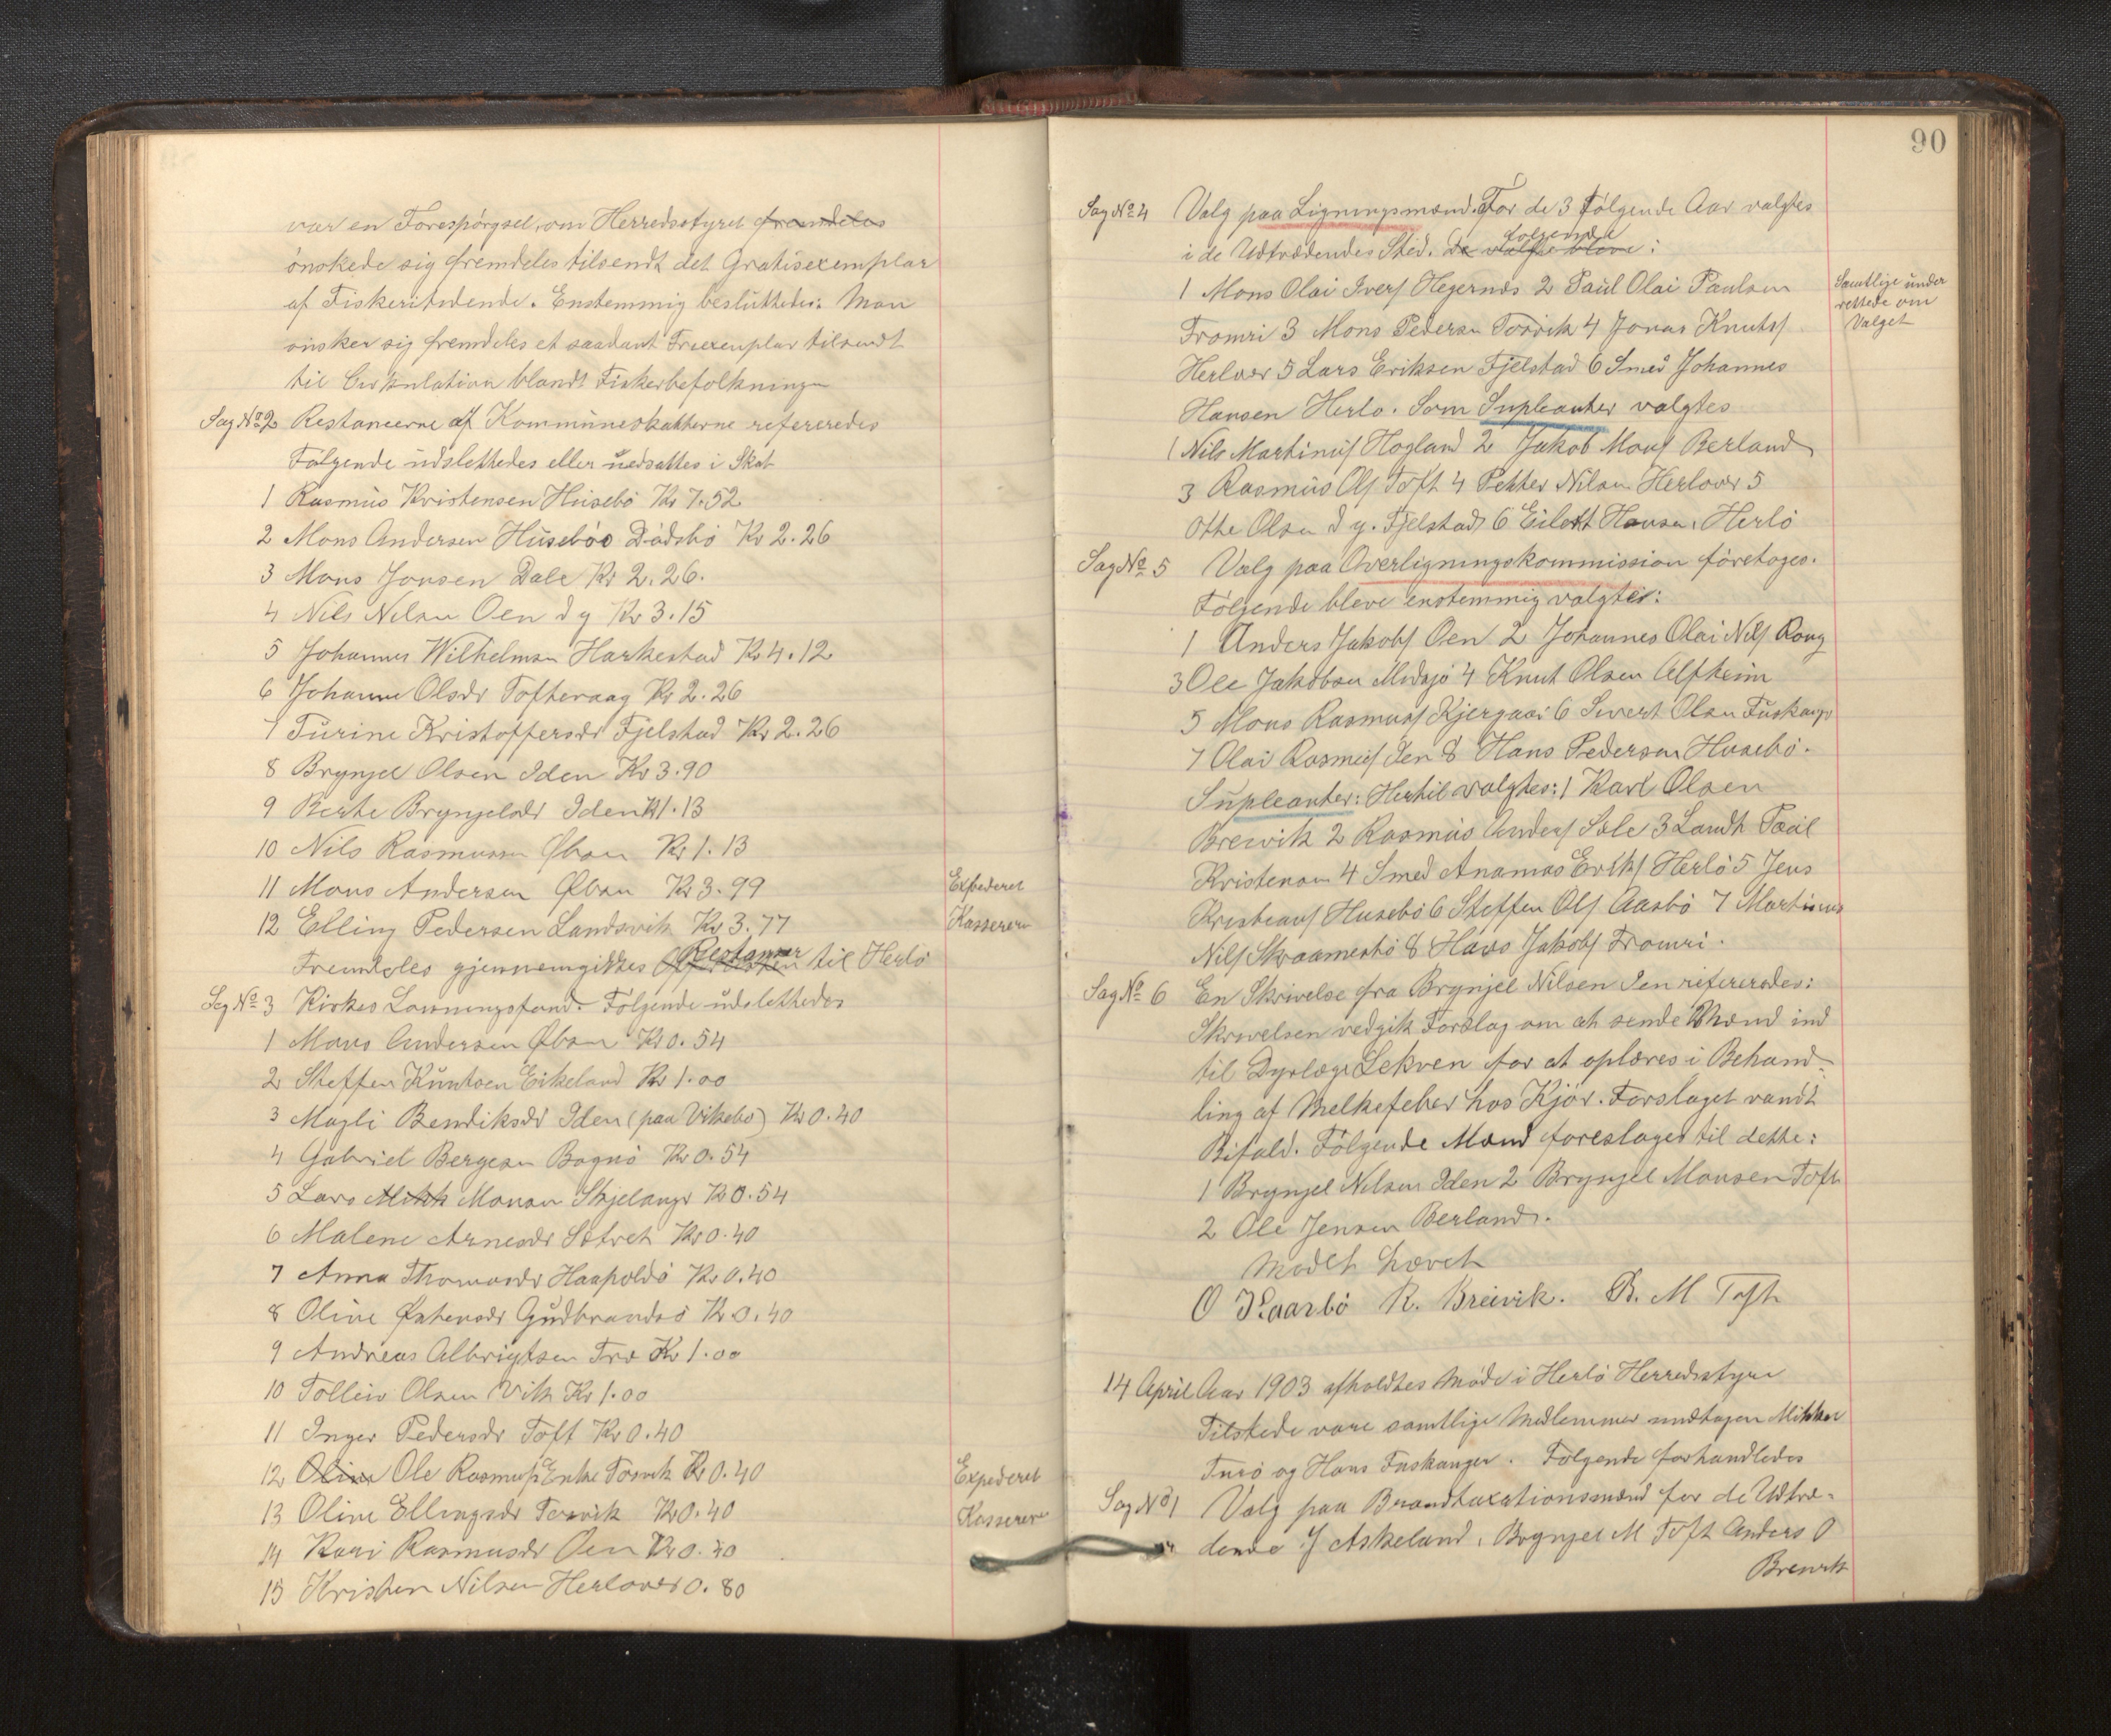 var en Forespörgsel, om Herredsstyret fremdeles
önskede sig fremdeles tilsendt det Gratisexemplar
af Fiskeritidende. Enstemmig besluttedes: Man
önsker sig fremdeles et saadant Friexemplar tilsendt
til Cirkulation blandt Fiskerbefolkningen
Sag No 2 Restancerne af Kommuneskatterne refereredes
Følgende udslettedes eller nedsattes i Skat
1 Rasmus Kristensen Husebö Kr 7.52
2 Mons Andersen Husebö Kr 2.26
3 Mons Jonsen Dale Kr 2.26.
4 Nils Nilsen Oen d y Kr 3.15
5 Johannes Wilhelmsen Harkestad Kr 4.12
6 Johanne Olsdr Tofteraag Kr 2.26
7 Turine Kristoffersdr Fjelstad Kr 2.26
8 Brynjel Olsen Iden Kr 3.90
9 Berte Brynjelsdr Iden Kr 1.13
10 Nils Rasmussen Øban Kr 1.13
11 Mons Andersen Øban Kr 3.99
Expederet
12 Elling Pedersen Landsvik Kr 3.77
Kassereren
Fremdeles gjennemgikkes Restancer til Herlö
Sag No 3 Kirkes Lønningsfond. Følgende udslettedes
1 Mons Andersen Øban Kr 0.54
2 Steffen Knutsen Eikeland Kr 1.00
3 Magli Bendiksdr Iden (paa Vikebø) Kr 0.40
4 Gabriel Bergesen Bognö Kr 0.54
5 Lars Mikk Monsen Skjelanger Kr 0.54
6 Malene Arnesdr Sætret Kr 0.40
7 Anna Thomasdr Haapoldö Kr 0.40
8 Oline Østensdr Gudbrandsö Kr 0.40
9 Andreas Albrigtsen Træ Kr 1.00
10 Tolleiv Olsen Vik Kr 1.00
11 Inger Pedersdr Toft Kr 0.40
12 Oline Ole Rasmus Enke Torsvik Kr 0.40
Expederet
13 Oline Ellingsdr Torsvik Kr 0.40
Kassereren
14 Kari Rasmusdr Oen Kr 0.40
15 Kristen Nilsen Herlover 0.80
90
Sag No 4 Valg paa Ligningsmænd. For de 3 følgende Aar valgtes
i de Udtrædendes Sted. De valgte bleve følgende:
1 Mons Olai Ivers Hegernes 2 Paul Olai Paulsen
Fromri 3 Mons Pedersen Torsvik 4 Jonas Knuts
Herlover 5 Lars Eriksen Fjelstad 6 Smed Johannes
Hansen Herlo. Som Supleanter valgtes
Samtlige under
rettede om
Valget
1 Nils Martinus Hogland 2 Jakob Mons Berland
3 Rasmus Ols Toft 4 Petter Nilsen Herlover 5
Otte Olsen d y. Fjelstad 6 Eilert Hansen, Herlö
Sag No 5 Valg paa Overligningskommission företoges.
Følgende bleve enstemmig valgte:
1 Anders Jakobs Oen 2 Johannes Olai Nils Rong
3 Ole Jakobsen Midsjö 4 Knut Olsen Alfheim
5 Mons Rasmus Kjergaar 6 Sivert Olsen Fuskanger
7 Olai Rasmus Iden 8 Hans Pedersen Husebö.
Supleanter: Hertil valgtes: 1 Karl Olsen
Breivik 2 Rasmus Anders Sæle 3 Landh Paul
Kristensen 4 Smed Ananias Eriks Herlö 5 Jens
Kristians Husebö 6 Steffen Ols Aasbö 7 Martinus
Nils Skraamestö 8 Hans Jakobs Fromri.
Sag No 6 En Skrivelse fra Brynjel Nilsen Iden refereredes:
Skrivelsen vedgik Forslag om at sende Mænd ind
til Dyrlæge Lekven for at oplæres i Behand-
ling af Melkefeber hos Kjör. Forslaget vandt
Bifald. Følgende Mænd foresloges til dette:
1 Brynjel Nilsen Iden 2 Brynjel Monsen Toft
2 Ole Jensen Berland.
Mødet hævet
O Kaarbö R. Breivik. B. M Toft
14 April Aar 1903 afholdtes Möde i Herlö Herredsstyre
Tilstede vare samtlige Medlemmer undtagen Mikkel
Turö og Hans Fuskanger. Følgende forhandledes
Sag No 1 Valg paa Brandtaxationsmænd for de Udtræ-
dende J Askeland, Brynjel M Toft Anders O
Breivik